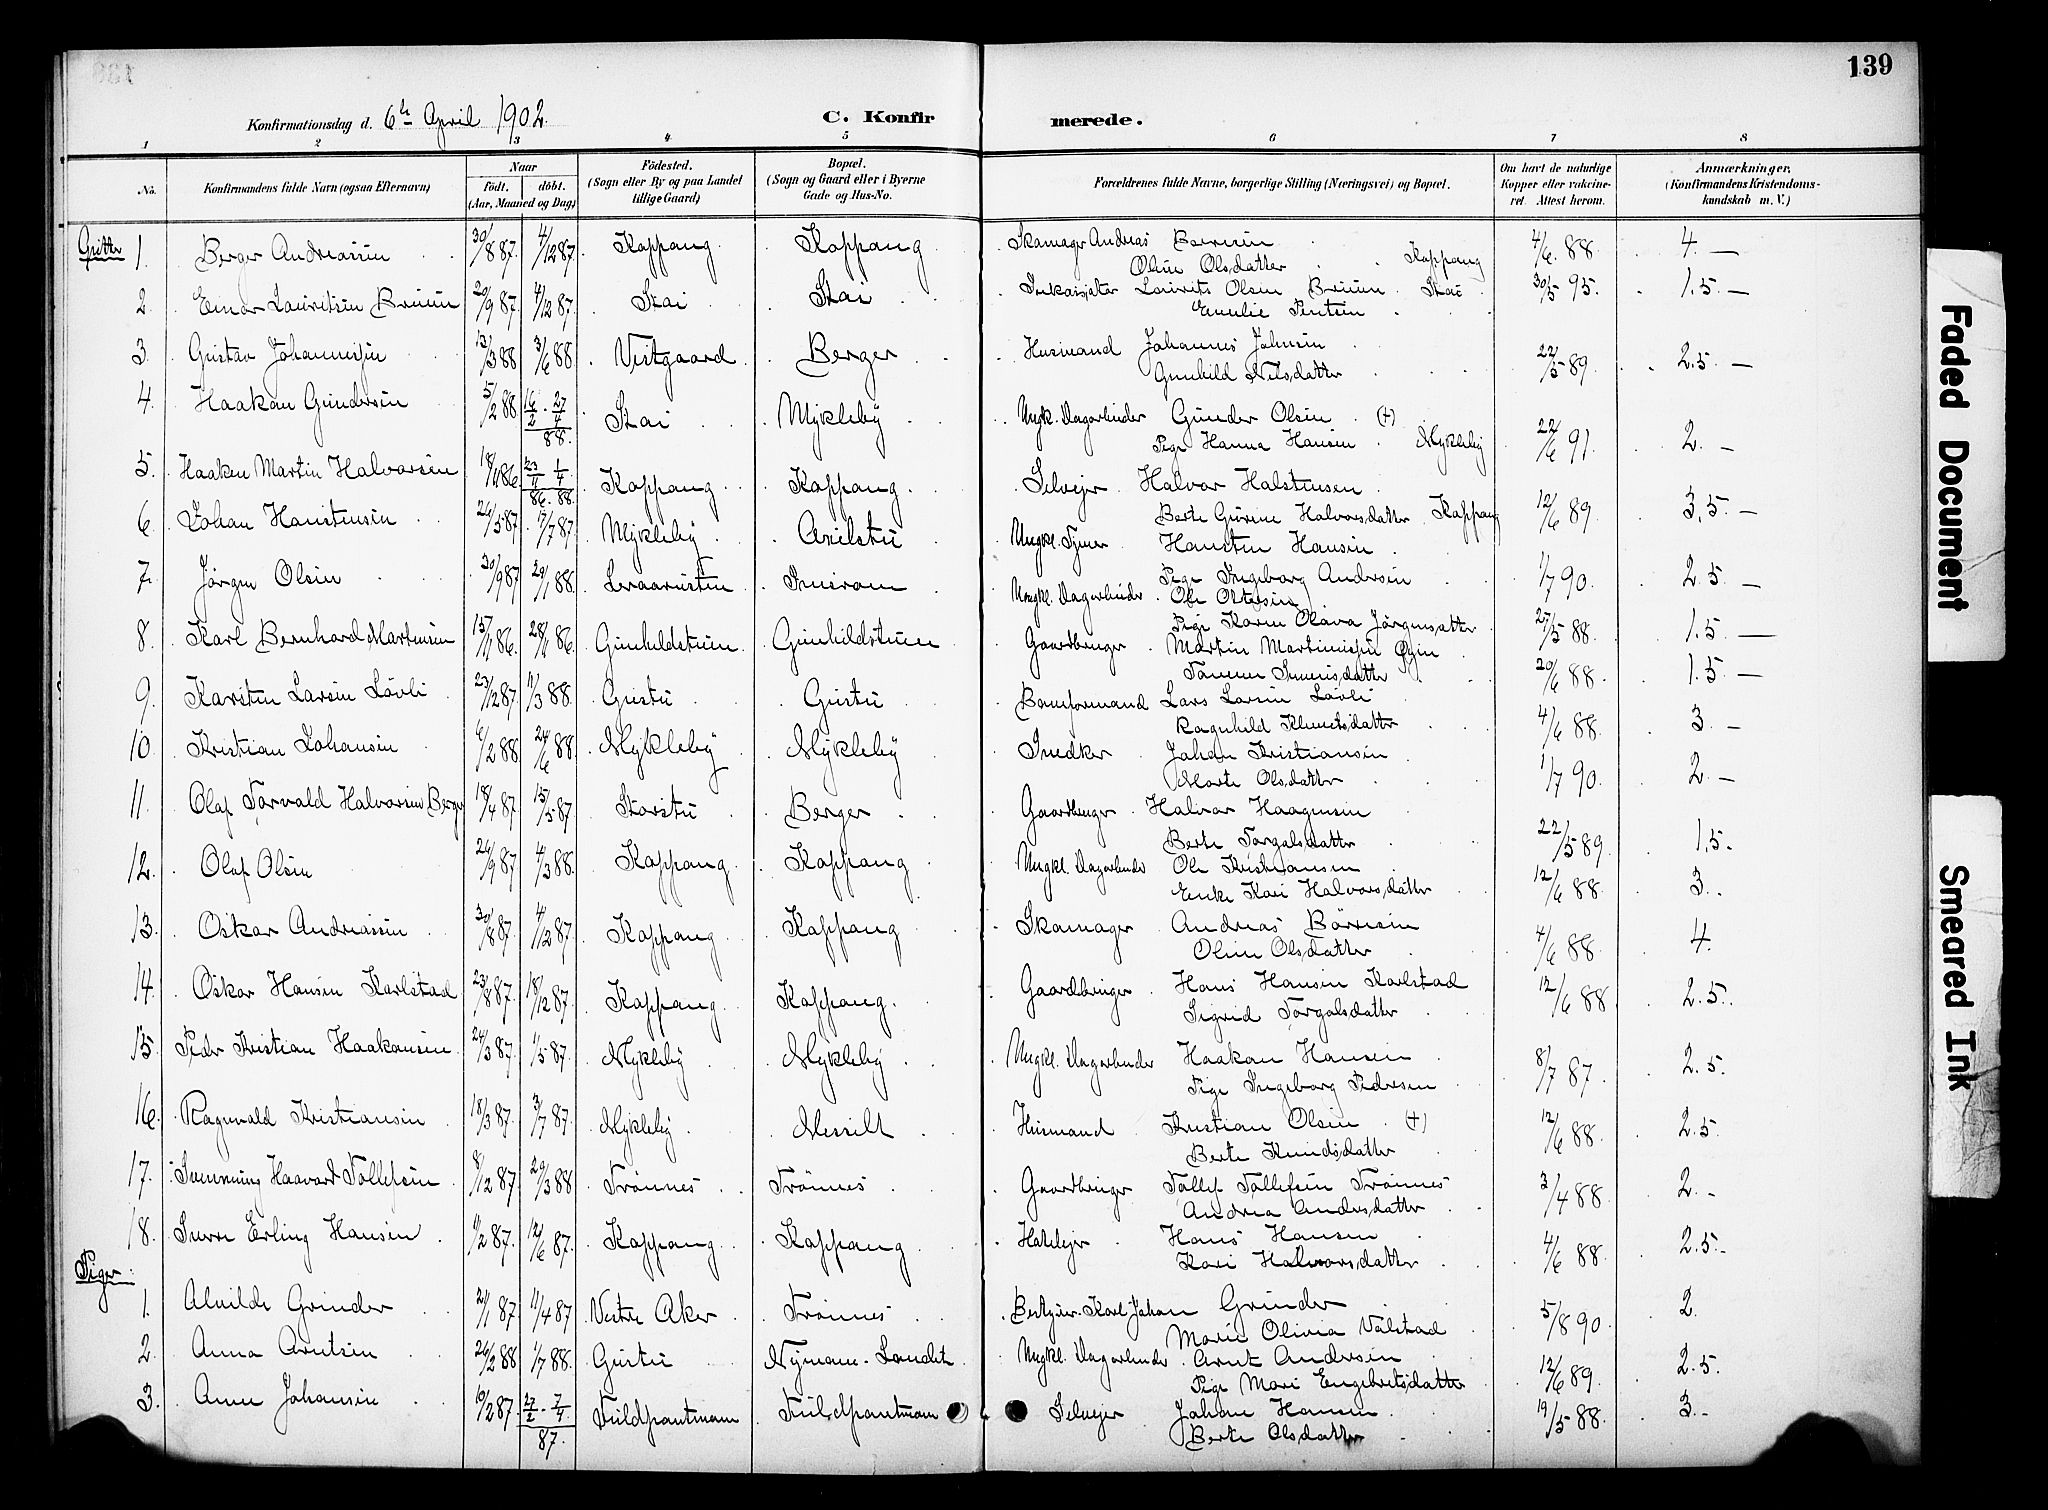 139
Konfirmationsdag d. 6te April 1902.
C. Konfirmerede.
1 2 3 4 5 6 7 8
No. Konfirmandens fulde Navn (ogsaa Efternavn) Naar födt. döbt. (Aar, Maaned og Dag) Födested. (Sogn eller By og paa Landet tillige Gaard) Bopæl. (Sogn og Gaard eller i Byerne Gade og Hus-No. Forældrenes fulde Navne, borgerlige Stilling (Næringsvei) og Bopæl. Om havt de naturlige Kopper eller vakcineret. Attest herom. Anmærkninger. (Konfirmandens Kristendomskundskab m. V.)
Gutter
1. Berger Andreassen 30/8 87. 4/12 87. Koppang Koppang Skomager Andreas Börresen 4/6 88 4. —
Oline Olsdatter Koppang
2. Einar Lauritsen Bruun 20/9 87. 4/12 87. Stai Stai Laurits Olsen Bruun Stai 30/5 95. 1.5 —
Emelie
3. Gustav Johannesen 13/3 88 3/6 88 Vestgaard Berger Husmand Johannes Johnsen 22/5 89. 2.5 —
Gunhild Nilsdatter
4. Haakon Gundersen 5/2 88 16/2 - 27/4 88. Stai Mykleby Ungk. Dagarbeider Gunder Olsen (+) 22/6 91 2. —
Pige Hanna Hansen Mykleby
5. Haakon Martin Halvorsen 18/11 86 23/11 86. 1/4 88. Koppang Koppang Selveier Halvor Halstensen 12/6 89 3,5. —
Berte Gurine Halvorsdatter Koppang
6. Johan Hanstensen 24/5 87 17/7 87 Mykleby Ungkl. Tjener Hansten Hansen 1/7 90. 2.5. —
Pige Ingeborg Andersen
7. Jörgen Olsen 30/9 87 29/1 88. Ungkl. Dagarbeider Ole Olsen 27/5 88 1.5. —
Pige Karen Olava Jörgensdatter
8. Karl Bernhard Martinsen 15/11 86. 28/11 86. Gunhildstuen Gunhildstuen Gaardbruger Martin Martinsen 20/6 88 1.5 —
9. Karsten Larsen Lövli 23/12 87. 11/3 88. Gustu Gustu Lars Larsen Lövli 4/6 88 3. —
Ragnhild
10. Kristian Johansen 6/2 88. 24/6 88. Mykleby Mykleby Snedker Johan Kristiansen 1/7 90. 2 —
Marte Olsdatter
11. Olaf Torvald Halvorsen Berger 18/4 87. 15/5 87 Storstu Berger Gaardbruger Halvor Haagensen 22/5 89. 1,5.
Berte Torgalsdatter
12. Olaf Olsen 24/9 87 4/3 88. Koppang Koppang Ungkl. Dagarbeider Ole Kristiansen 12/6 88 3.
Enke Kari Halvorsdatter
13. Oskar Andreassen 30/8 87. 4/12 87. Koppang Koppang Skomager Andreas Börresen 4/6 88 4.
Oline Olsdatter
14. Oskar Hansen Karlstad 23/8 87. 18/12 87. Koppang Koppang. Gaardbruger Hans Hansen Karlstad 12/6 88 2.5.
Sigrid Torgalsdatter
15 Peder Kristian Haakonsen 24/3 87. 1/5 87. Mykleby Mykleby Ungkl. Dagarbeider Haakon Hansen 8/7 87 2.5.
Pige Ingeborg Pedersen
16. Ragnvald Kristiansen 18/3 87. 3/7 87. Mykleby Messelt Husmand Kristian Olsen (+) 12/6 88. 2.5.
Berte Knudsdatter
17. Haavard Tollefsen 8/12 87 29/3 88 Trönnes Trönnes Gaardbruger Tollef Tollefsen Trönnes 3/4 88 2.
Andrea Andersdatter
18. Sverre Erling Hansen 11/2 87. 12/6 87. Koppang Koppang Hoteleier Hans Hansen 4/6 88 2.5.
Kari Halvorsdatter
Piger:
1. Alvilde Grinder 21/1 87 11/4 87 Vestre Aker Trönnes Karl Johan Grinder 5/8 90. 2.
Marie Olivia
2. Anna Arntsen 26/2 88 1/7 88. Gustu Ungkl. Dagarbeider Arnt Andersen 12/6 89. 2.5.
Pige Mari Engebretsdatter
3. Anne Johansen 10/2 87. 27/2 - 7/4. 87. Selveier Johan Hansen 19/5 88. 3.
Berte Olsdatter
Faded Document
Smeared Ink